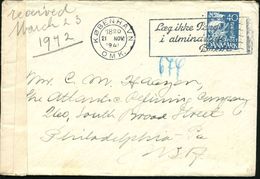 received
March 23
1942
KØBENHAVN
1820
21 NOV.
1941
OMK.
Læg ikke Pe
i almindeli
Breve
40
DANMARK
674
Mr. C. M. Hanson,
The Atlantic Refining Company
260, South Broad Street
Philadelphia Pa
U.S.A.